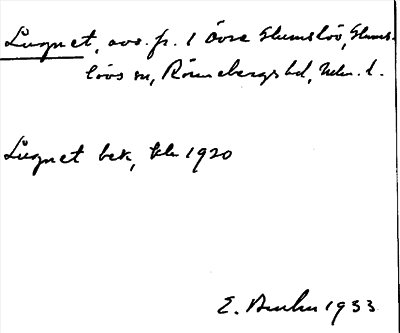 Lugnet, avs. fr. 1 Övre Glumslöv, Glums-
lövs sn, Rönnebergs hd, Malm. l.
Lugnet bek, 1920
E. 1933